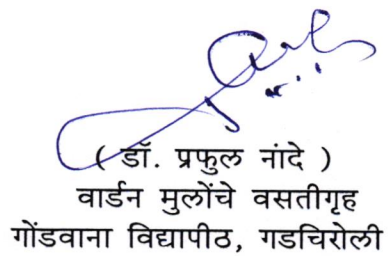 ( डॉ. प्रफुल नांदे )
वार्डन मुलोंचे वसतीगृह
गोंडवाना विद्यापीठ, गडचिरोली